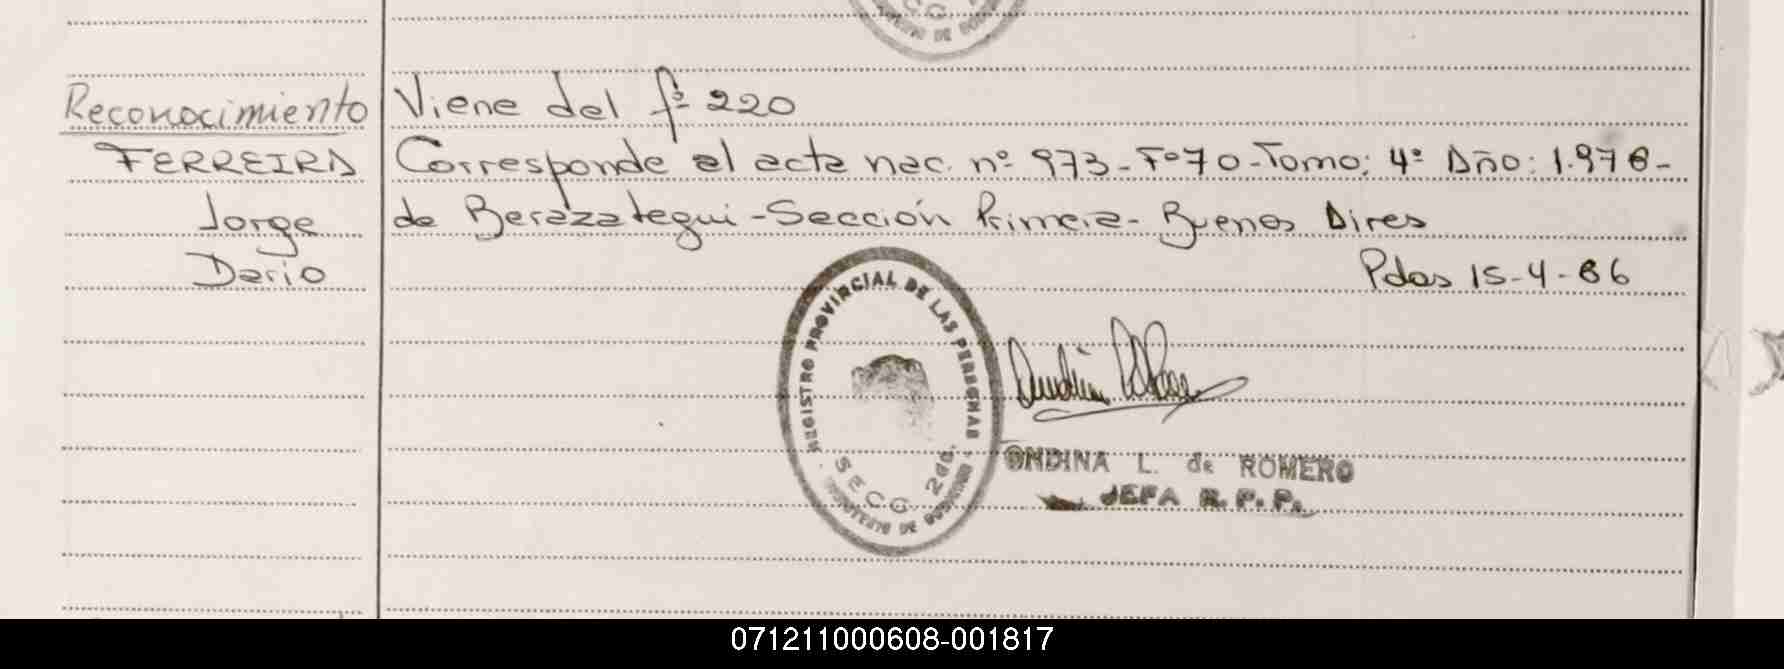 Reconocimiento
FERREIRA
Jorge
Dario
Viene del fº 220
Corresponde al acta nac. nº 973 - Fº 70 - Tomo: 4º Año: 1.976 -
de Berazategui - Sección Primera - Buenos Aires
Pdas 15-4-86
REGISTRO PROVINCIAL DE LAS PERSONAS
SECC. 2da.
MINISTERIO DE GOBIERNO
ONDINA L. de ROMERO
JEFA R. P. P.
071211000608-001817